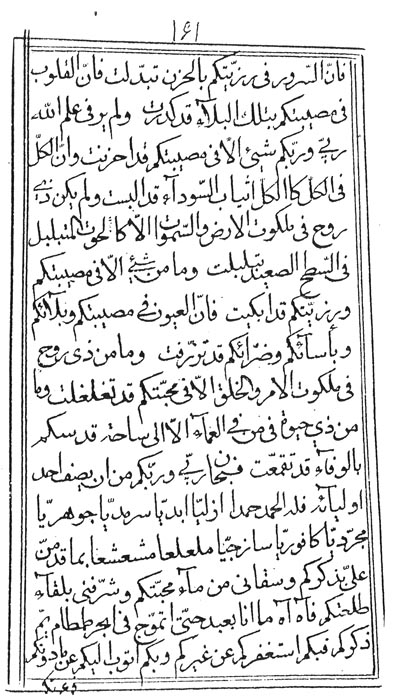 ١٤١
فانّ السّرور فی رزیّتکم بالحزن تبدّلت فانّ القلوب
فی مصیبتکم بتلک البلآء قد کدرت ولم یر فی علم الله
ربّی وربّکم شیئ الّا فی مصیبتکم قد احزنت وانّ الکلّ
فی الکلّ کالکل اثیاب السّودآء قد البست ولم یکن ذی
روح فی ملکوت الارض والسّموات الّا کالحوت المتبلبل
فی السّطح الصعید تبلبلت وما من شیئ الّا فی مصیبتکم
ورزیّتکم قد ابکیت فانّ العیون فی مصیبتکم وبلائکم
وبأسائکم وضرّائکم قد تذرّفت وما من ذی روح
فی ملکوت الامر والخلق الّا فی محبّتکم قد تغلغلت وما
من ذی حیوة فی من فی العمآء الّا الی ساحة قدسکم
بالوفآء قد تقمّعت فسبحان ربّی وربّکم من ان یصف احد
اولیآئه فله الحمد حمدا ازلیّا ابدیّا سرمدیّا جوهریّا
مجرّدیّا کافوریّا سازجیّا ملعلعا مشعشعا بما قد منّ
علیّ بذکرکم وسقانی من مآء محبّتکم وشرّفنی بلقآء
طلعتکم فآه آه ما انا بعبد حتّی اتموّج فی ابحر طمطام یمّ
ذکرکم فبکم استغفرکم عن غیرکم وبکم اتوب الیکم عن